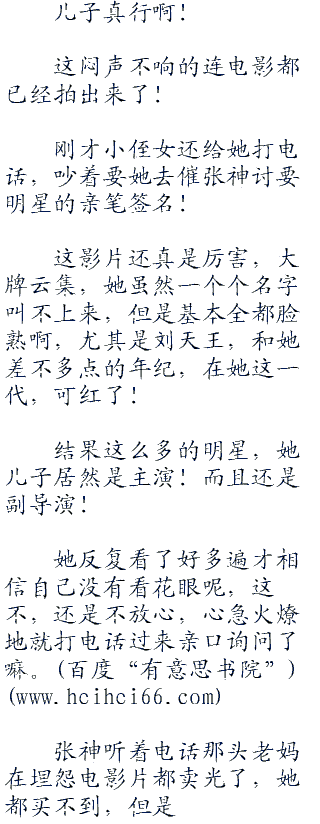 儿子真行啊！
这闷声不响的连电影都
已经拍出来了！
刚才小侄女还给她打电
话，吵着要她去催张神讨要
明星的亲笔签名！
这影片还真是厉害，大
牌云集，她虽然一个个名字
叫不上来，但是基本全都脸
熟啊，尤其是刘天王，和她
差不多点的年纪，在她这一
代，可红了！
结果这么多的明星，她
儿子居然是主演！而且还是
副导演！
她反复看了好多遍才相
信自己没有看花眼呢，这
不，还是不放心，心急火燎
地就打电话过来亲口询问了
嘛。(百度“有意思书院”)
(www.hcihci66.com)
张神听着电话那头老妈
在埋怨电影片都卖光了，她
都买不到，但是